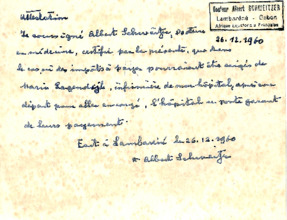 Attestation
Docteur Albert SCHWEITZER
Lambaréné - Gabon
Afrique Equatoriale Française
26.12.1960
Je soussigné Albert Schweitzer, docteur
en médecine, certifie par la présente, que dans
le cas où des impôts à payer pourraient être exigés de
Maria Lagendijk, infirmière de mon hôpital, après son
départ pour aller en congé, l'hôpital se porte garant
de leurs payement.
Fait à Lambaréné le 26.12.1960
Albert Schweitzer